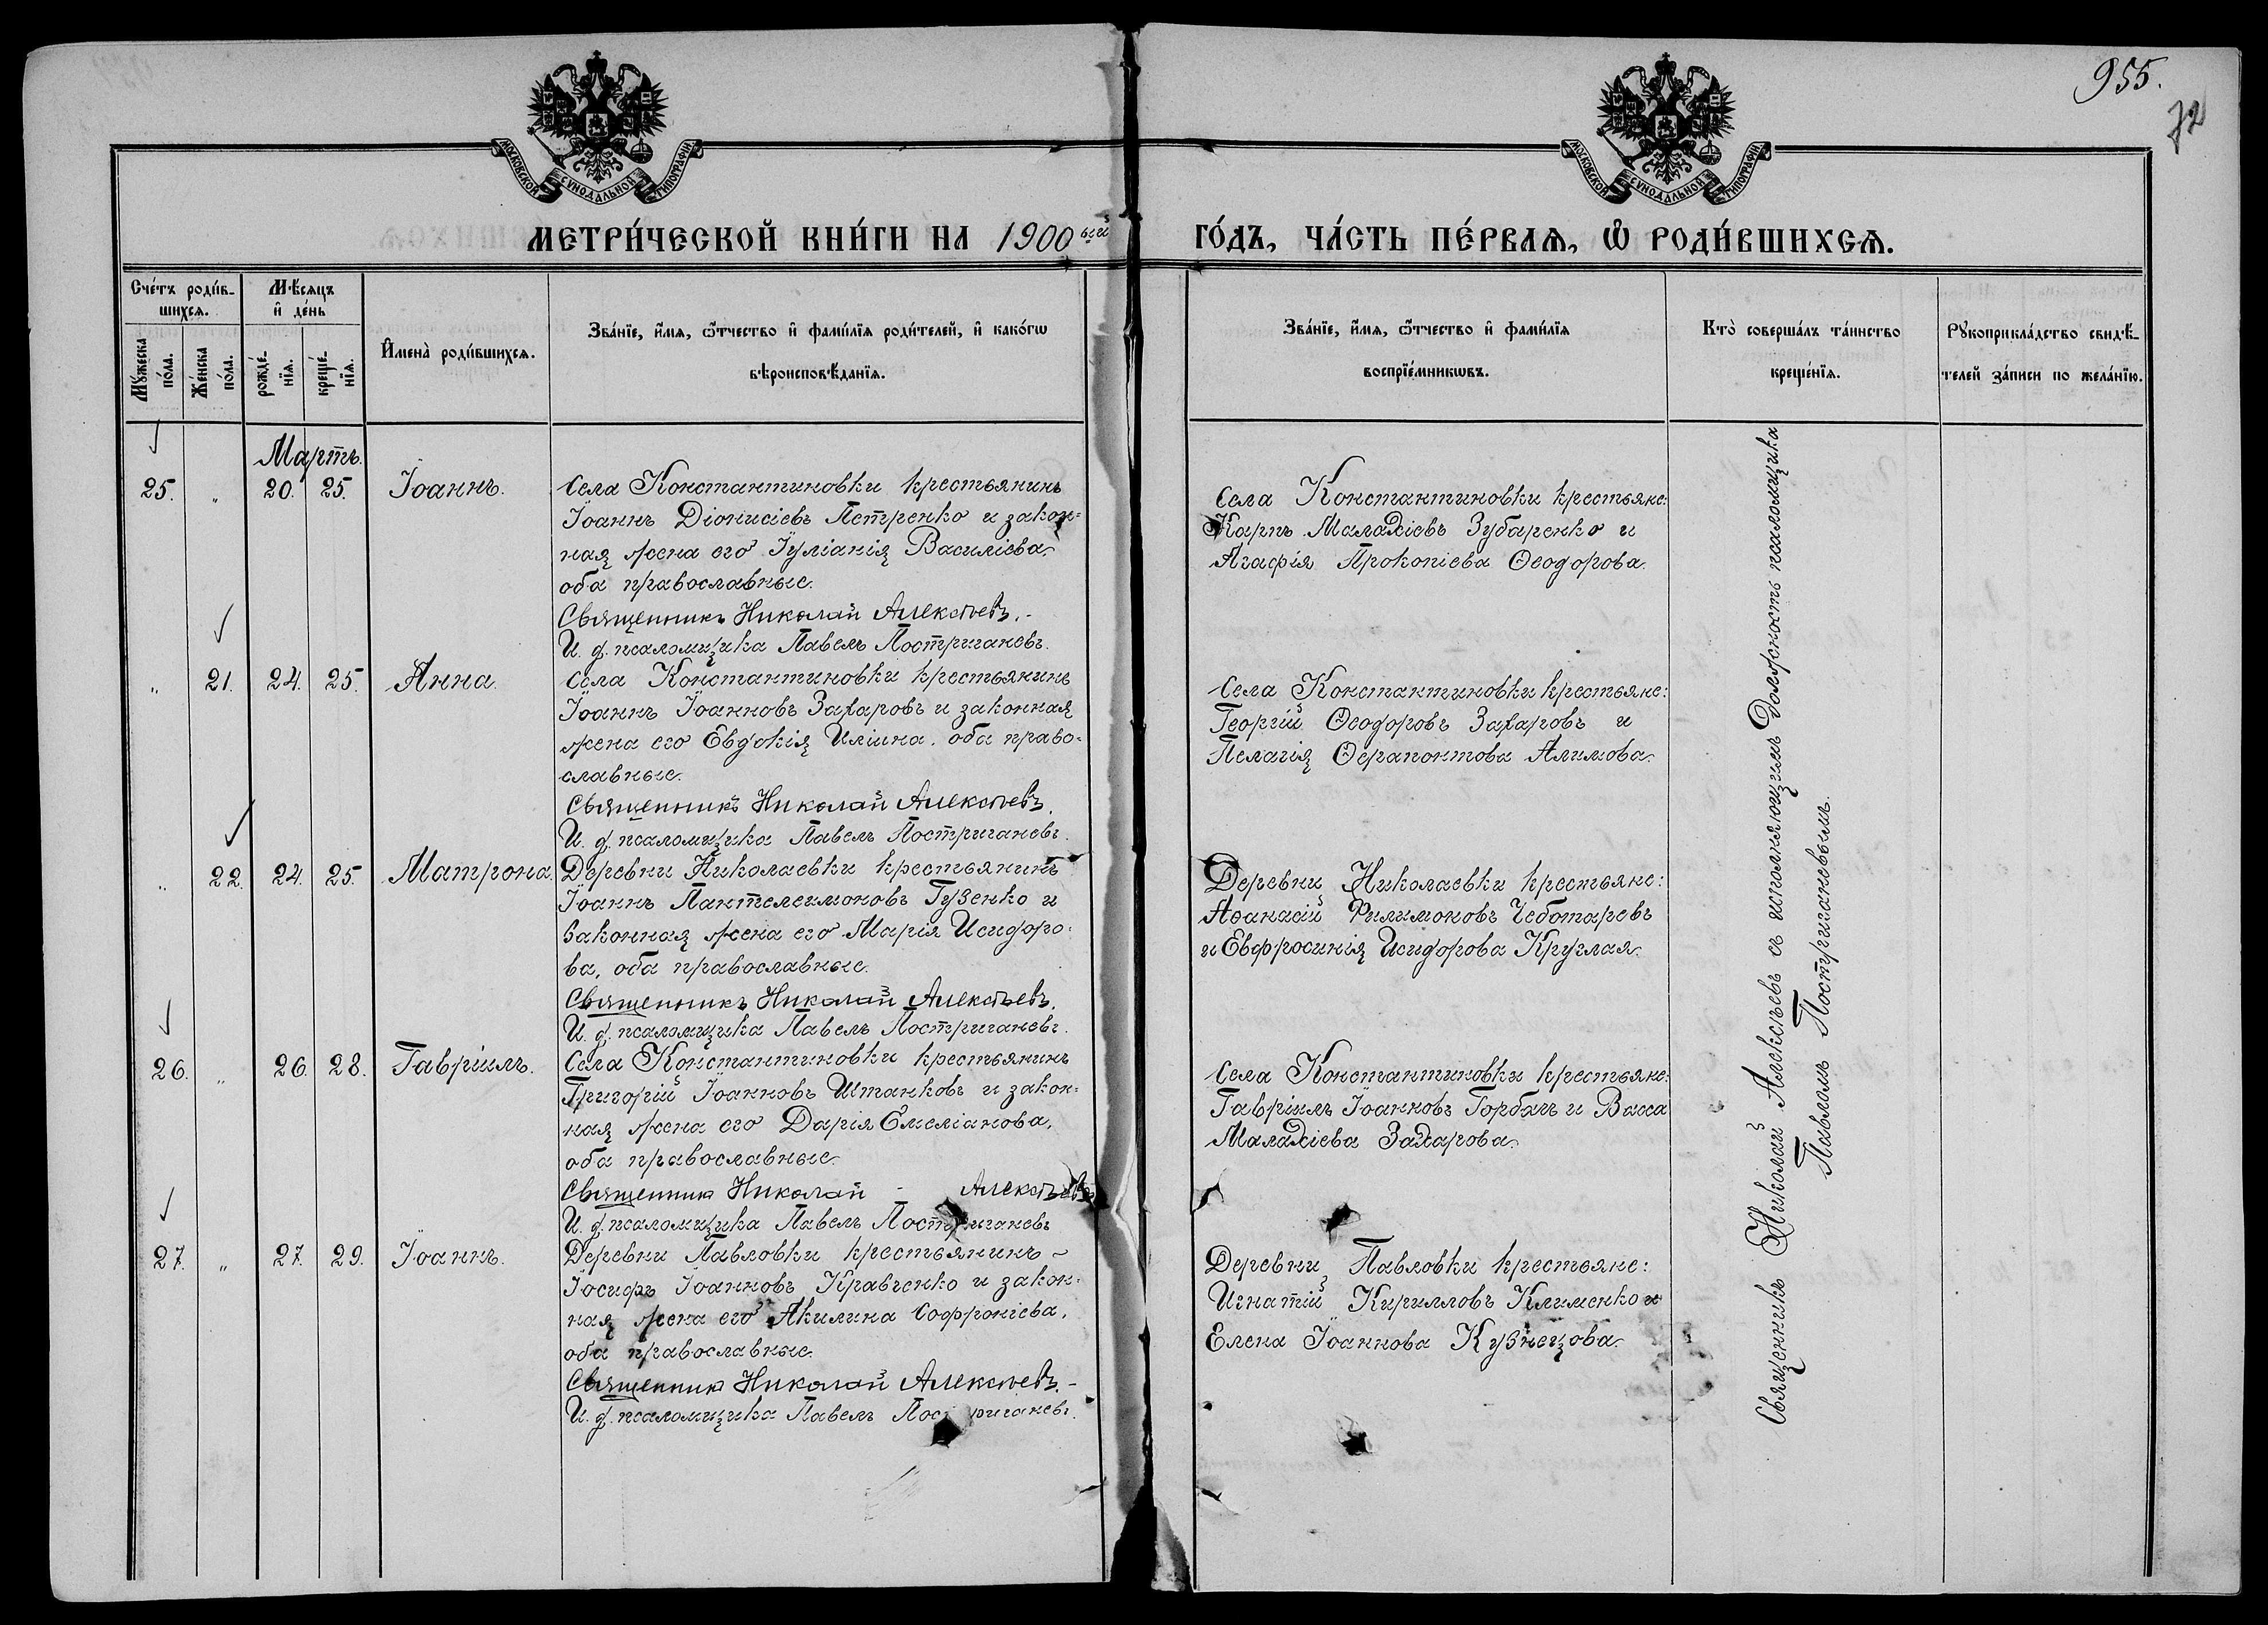 955.
72
МОСКОВСКОЙ СѴНОДАЛЬНОЙ ТИПОГРАФІИ
МОСКОВСКОЙ СѴНОДАЛЬНОЙ ТИПОГРАФІИ
МЕТРИ́ЧЕСКОЙ КНИ́ГИ НА 1900ый ГО́ДЪ, ЧА́СТЬ ПЕ́РВАѦ, Ѽ РОДИ́ВШИХСѦ.
Сче́тъ роди́в-
шихсѧ.
Мꙋ́жеска
по́ла.
Же́нска
по́ла.
Мѣ́сѧцъ
и҆ де́нь
рожде́-
нїѧ.
креще́-
нїѧ.
И҆мена̀ роди́вшихсѧ.
Зва́нїе, и҆́мѧ, ѻ҆́тчество и҆ фами́лїѧ роди́телей, и҆ како́гѡ
вѣроисповѣ́данїѧ.
Зва́нїе, и҆́мѧ, ѻ҆́тчество и҆ фами́лїѧ
воспрїе́мникѡвъ.
Кто̀ соверша́лъ та́инство
креще́нїѧ.
Рꙋкоприкла́дство свидѣ́-
телей за́писи по жела́нїю.
Мартъ.
25. " 20. 25. Іоаннъ.
Села Константиновки крестьянинъ
Іоаннъ Діонисіевъ Петренко и закон=
ная жена его Іуліанія Василіева
оба православные.
Священникъ Николай Алексѣевъ.
И. д. псаломщика Павелъ Постриганевъ.
Села Константиновки крестьяне:
Карпъ Малахіевъ Зубаренко и
Агафія Прокопіева Ѳеодорова.
" 21. 24. 25. Анна.
Села Константиновки крестьянинъ
Іоаннъ Іоанновъ Захаровъ и законная
жена его Евдокія Иліина. оба право=
славные.
Священникъ Николай Алексѣевъ.
И. д. псаломщика Павелъ Постриганевъ.
Села Константиновки крестьяне:
Георгій Ѳеодоровъ Захаровъ и
Пелагія Ѳерапонтова Алимова.
" 22. 24. 25. Матрона.
Деревни Николаевки крестьянинъ
Іоаннъ Пантелеимоновъ Гузенко и
законная жена его Марія Исидоро=
ва, оба православные.
Священникъ Николай Алексѣевъ.
И. д. псаломщика Павелъ Постриганевъ.
Деревни Николаевки крестьяне:
Аѳанасій Филимоновъ Чеботаревъ
и Евфросинія Исидорова Круглая.
26. " 26. 28. Гавріилъ.
Села Константиновки крестьянинъ
Григорій Іоанновъ Штанковъ и закон=
ная жена его Дарія Емеліанова,
оба православные.
Священникъ Николай - Алексѣевъ
И. д. псаломщика Павелъ Постриганевъ
Села Константиновки крестьяне:
Гавріилъ Іоанновъ Горбачъ и Васса
Малахіева Захарова.
27. " 27. 29. Іоаннъ.
Деревни Павловки крестьянинъ
Іосифъ Іоанновъ Кравченко и закон=
ная жена его Акилина Софроніева,
оба православные.
Священникъ Николай Алексѣевъ.
И. д. псаломщика Павелъ Постриганевъ.
Деревни Павловки крестьяне:
Игнатій Кирилловъ Клименко и
Елена Іоаннова Кузнецова.
Священникъ Николай Алексѣевъ съ исполняющимъ должность псаломщика
Павломъ Постриганевымъ.